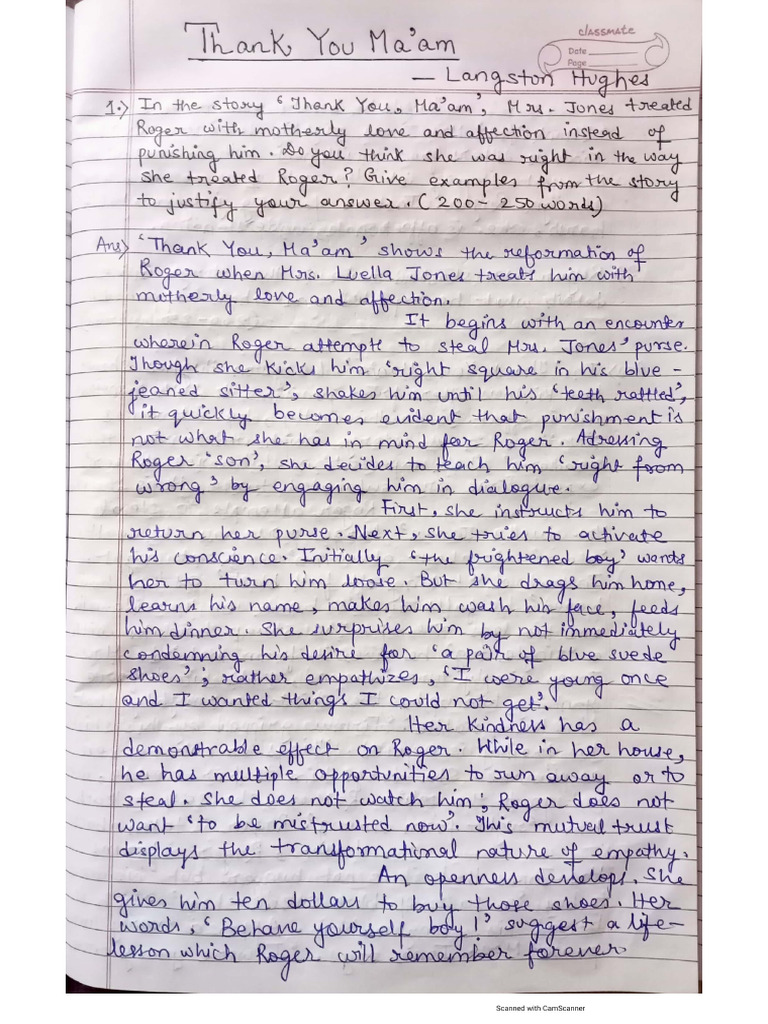 Thank You Ma'am
classmate
Date
Page
— Langston Hughes
1.) In the story 'Thank You, Ma'am', Mrs. Jones treated
Roger with motherly love and affection instead of
punishing him. Do you think she was right in the way
she treated Roger? Give examples from the story
to justify your answer. (200-250 words)
Ans) 'Thank You, Ma'am' shows the reformation of
Roger when Mrs. Luella Jones treats him with
motherly love and affection.
It begins with an encounter
wherein Roger attempts to steal Mrs. Jones' purse.
Though she kicks him 'right square in his blue-
jeaned sitter', shakes him until his 'teeth rattled',
it quickly becomes evident that punishment is
not what she has in mind for Roger. Adressing
Roger 'son', she decides to teach him 'right from
wrong' by engaging him in dialogue.
First, she instructs him to
return her purse. Next, she tries to activate
his conscience. Initially 'the frightened boy' wants
her to turn him loose. But she drags him home,
learns his name, makes him wash his face, feeds
him dinner. She surprises him by not immediately
condemning his desire for 'a pair of blue suede
shoes'; rather empathizes, 'I were young once
and I wanted things I could not get'.
Her kindness has a
demonstrable effect on Roger. While in her house,
he has multiple opportunities to run away or to
steal. She does not watch him; Roger does not
want 'to be mistrusted now'. This mutual trust
displays the transformational nature of empathy.
An openness develops. She
gives him ten dollars to buy those shoes. Her
words, 'Behave yourself boy!' suggest a life-
lesson which Roger will remember forever
Scanned with CamScanner